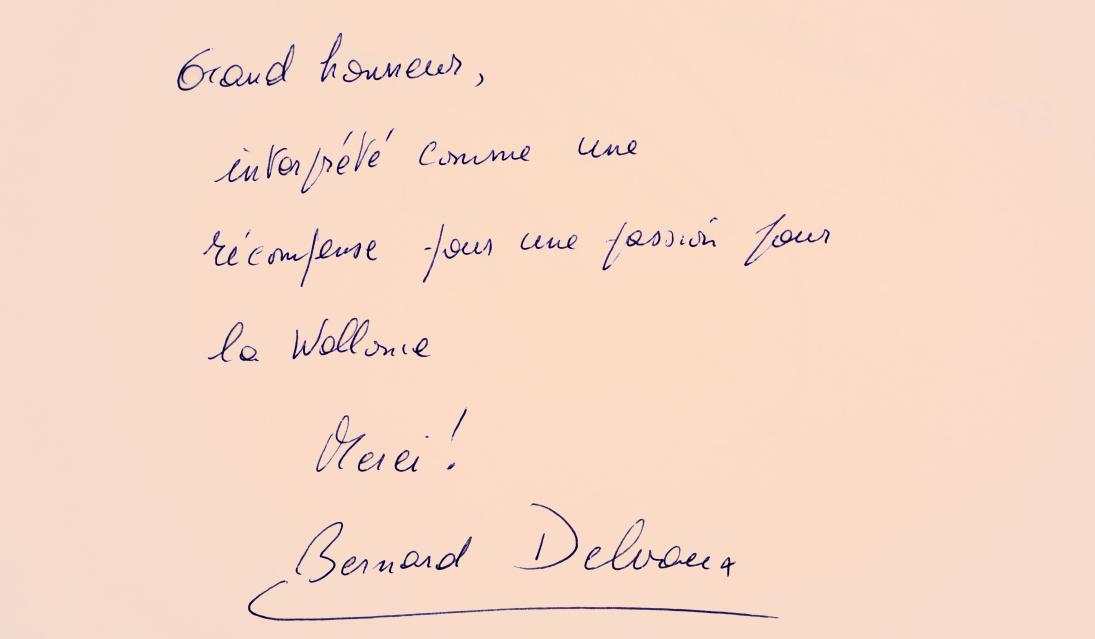 Grand honneur,
interprété comme une
récompense pour une passion pour
la Wallonie
Merci !
Bernard Delvaux